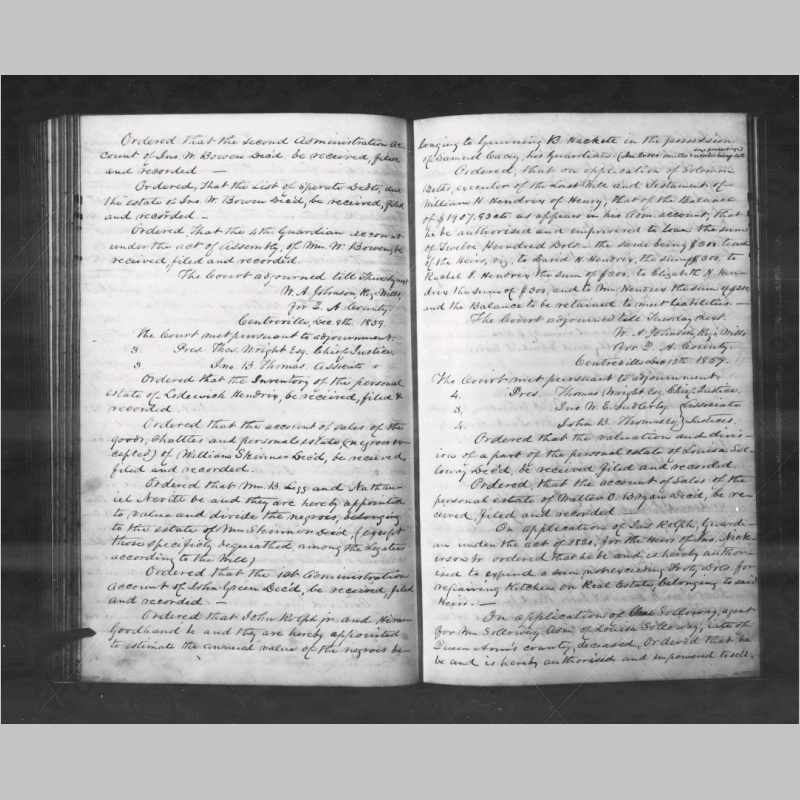 Ordered that the second Administration Ac-
count of Jno. W. Bowen Dec'd, be received, filed
and recorded —
Ordered, that the List of Sperate Debts, due
the estate of Jno W. Bowen Dec'd, be received, filed,
and recorded —
Ordered that the 4th Guardian account
under the act of Assembly, of Wm. W. Bowen, be
received filed and recorded.
The Court adjourned till
W. A. Johnson, Reg. Wills,
for Q. A. County.
Centreville, Dec 9th, 1859.
The Court met pursuant to adjournment.
3. Pres. Thos. Wright Esq. Chief Justice,
3 Jno. B. Thomas, Associate
Ordered that the Inventory of the personal
estate of Lodewick Hendrix, be received, filed &
recorded
Ordered that the account of sales of the
goods, Chattles and personal estate (negroes ex-
cepted) of William Skinner Dec'd, be received,
filed and recorded.
Ordered that Wm. B. Legg and Nathan-
iel Nevitt be and they are hereby appointed
to value and divide the negroes, belonging
to the estate of Wm Skinner Dec'd, (except
those specifically bequeathed among the Legatees
according to the Will)
Ordered that the 1st Administration
account of John Green Dec'd, be received, filed
and recorded. —
Ordered that John Rolph jr. and Hiram
Goodhand be and they are hereby appointed
to estimate the annual value of the negroes be-
longing to Gunning B. Hackett in the possession
of Samuel Cacy, his Guardian.
Ordered, that on application of Solomon
Betts, executor of the Last Will and Testament of
William H. Hendrix of Henry, that of the Balance
of $1907.53cts as appears in his Adm. account, that
he be authorised and empowered to Loan the sum
of Twelve Hundred Dols — the same being $300 to each
of the Heirs, viz, to David H. Hendrix, the sum of $300, to
Rachel V. Hendrix the sum of $300, to Elizabeth H. Hen-
drix the sum of $300, and to Wm Hendrix the sum of $300
and the Balance to be retained to meet liabilities —
The Court adjourned till Tuesday next.
W. A. Johnson, Reg. Wills
for Q. A. County.
Centreville Dec 13th 1859.
The Court met pursuant to adjournment
4. Pres. Thomas Wright Esq Chief Justice.
3, Jno W. E. Sudler Esq Associate
4. John B. Thomas Esq Justices.
Ordered that the valuation and divis-
ion of a part of the personal estate of Louisa Sol-
loway Dec'd, be received filed and recorded.
Ordered that the account of Sales of the
personal estate of Walter O. Bryan Dec'd, be re-
ceived, filed and recorded —
On application of Jas Rolph, Guardi-
an under the act of 1820, for the Heirs of Jno. Nick-
erson Jr ordered that he be and is hereby author-
ised to expend a sum not exceeding Forty Dols. for
repairing Kitchen on Real Estate, belonging to said
Heirs. —
On application of Solloway, agent
for Wm Solloway Adm. of Louisa Solloway, late of
Queen Ann's county, deceased, Ordered that he
be and is hereby authorised and empowered to sell,